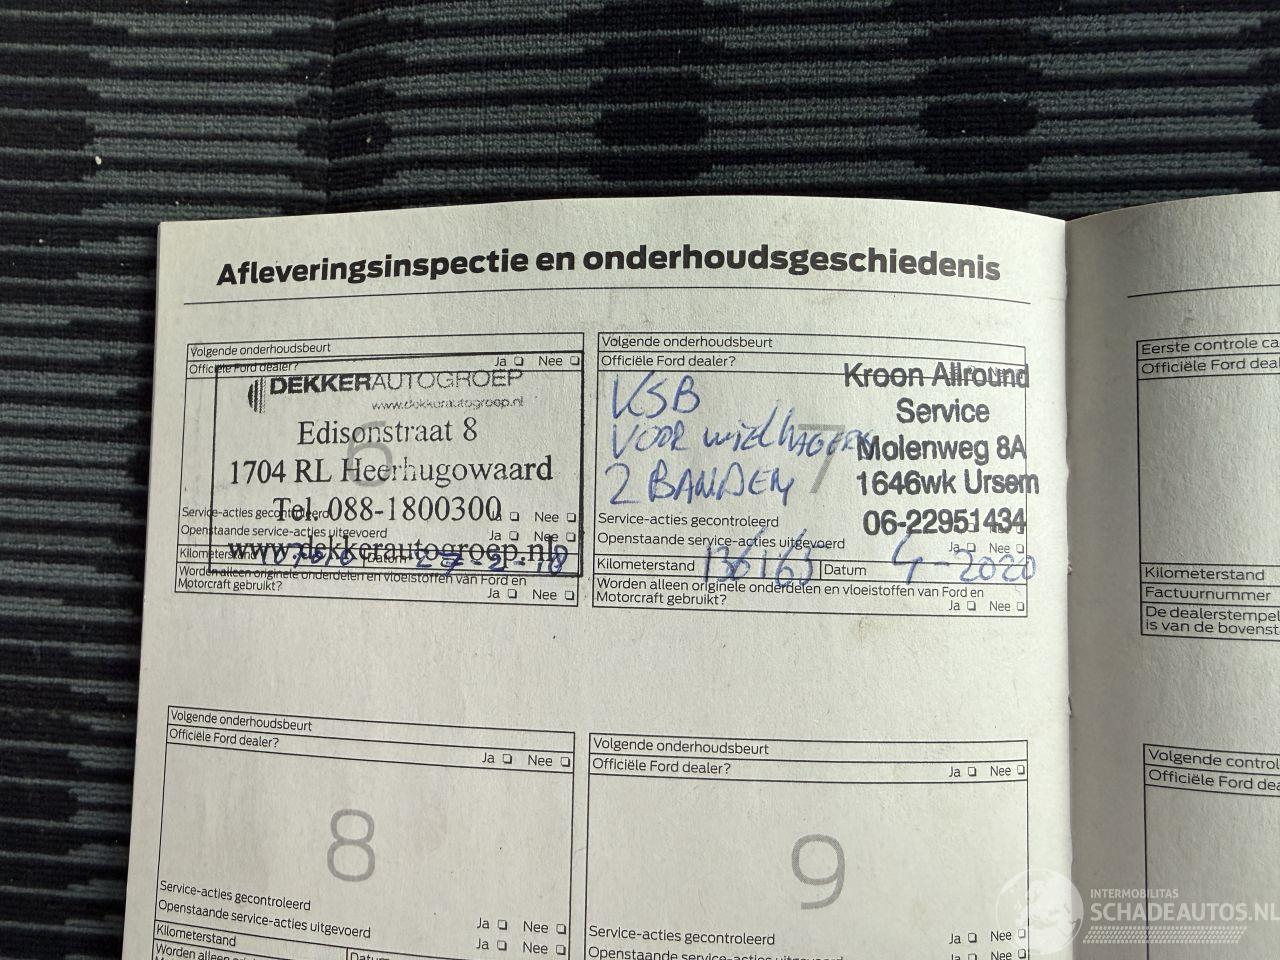 Afleveringsinspectie en onderhoudsgeschiedenis
Volgende onderhoudsbeurt
Officiële Ford dealer?
Ja Nee
DEKKERAUTOGROEP
www.dekkerautogroep.nl
6
Edisonstraat 8
1704 RL Heerhugowaard
Tel. 088-1800300
Service-acties gecontroleerd
Ja Nee
Openstaande service-acties uitgevoerd
Ja Nee
www.dekkerautogroep.nl
Kilometerstand Datum 27-2-18
Worden alleen originele onderdelen en vloeistoffen van Ford en
Motorcraft gebruikt?
Ja Nee
Volgende onderhoudsbeurt
Officiële Ford dealer?
Kroon Allround
Service
Molenweg 8A
1646wk Ursem
06-22951434
KSB
VOOR WIELLAGERS
2 BANDEN
7
Service-acties gecontroleerd
Openstaande service-acties uitgevoerd
Ja Nee
Kilometerstand 136163 Datum 4-2020
Worden alleen originele onderdelen en vloeistoffen van Ford en
Motorcraft gebruikt?
Ja Nee
Volgende onderhoudsbeurt
Officiële Ford dealer?
Ja Nee
8
Service-acties gecontroleerd
Ja Nee
Openstaande service-acties uitgevoerd
Ja Nee
Kilometerstand Datum
Worden alleen
Volgende onderhoudsbeurt
Officiële Ford dealer?
Ja Nee
9
Service-acties gecontroleerd
Ja Nee
Openstaande service-acties uitgevoerd
Ja Nee
Eerste controle ca
Officiële Ford deal
Kilometerstand
Factuurnummer
De dealerstempel
is van de bovenst
Volgende control
Officiële Ford dea
INTERMOBILITAS
SCHADEAUTOS.NL